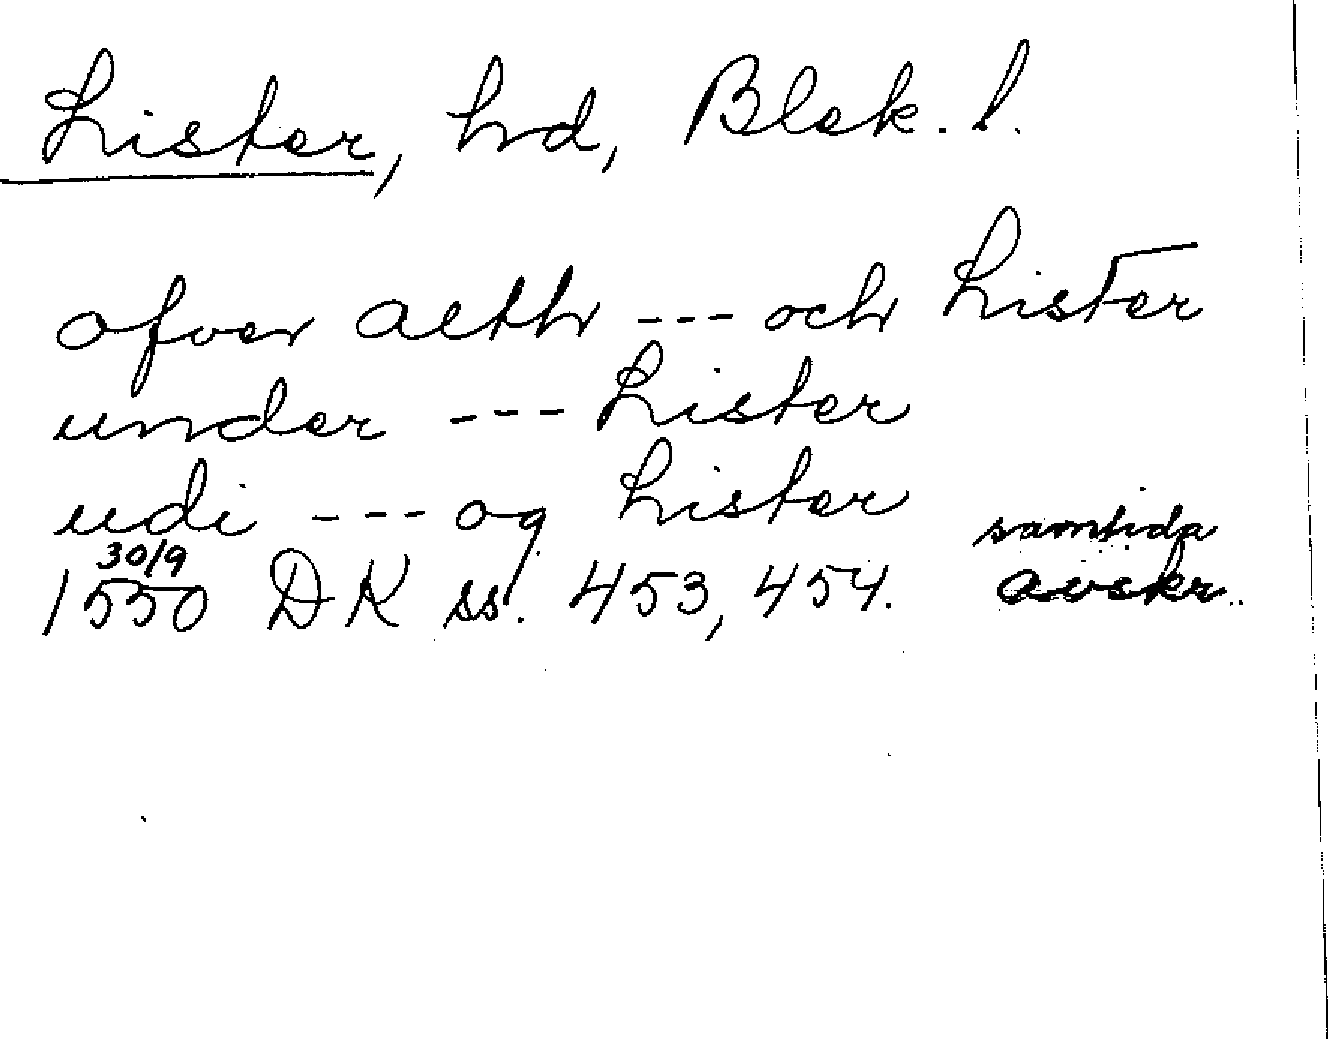 Lister, hd, Blek. l.
ofver aelth --- och Lister
under --- Lister
udi --- og Lister samtida
30/9
1550 DK ss. 453, 454. avskr.